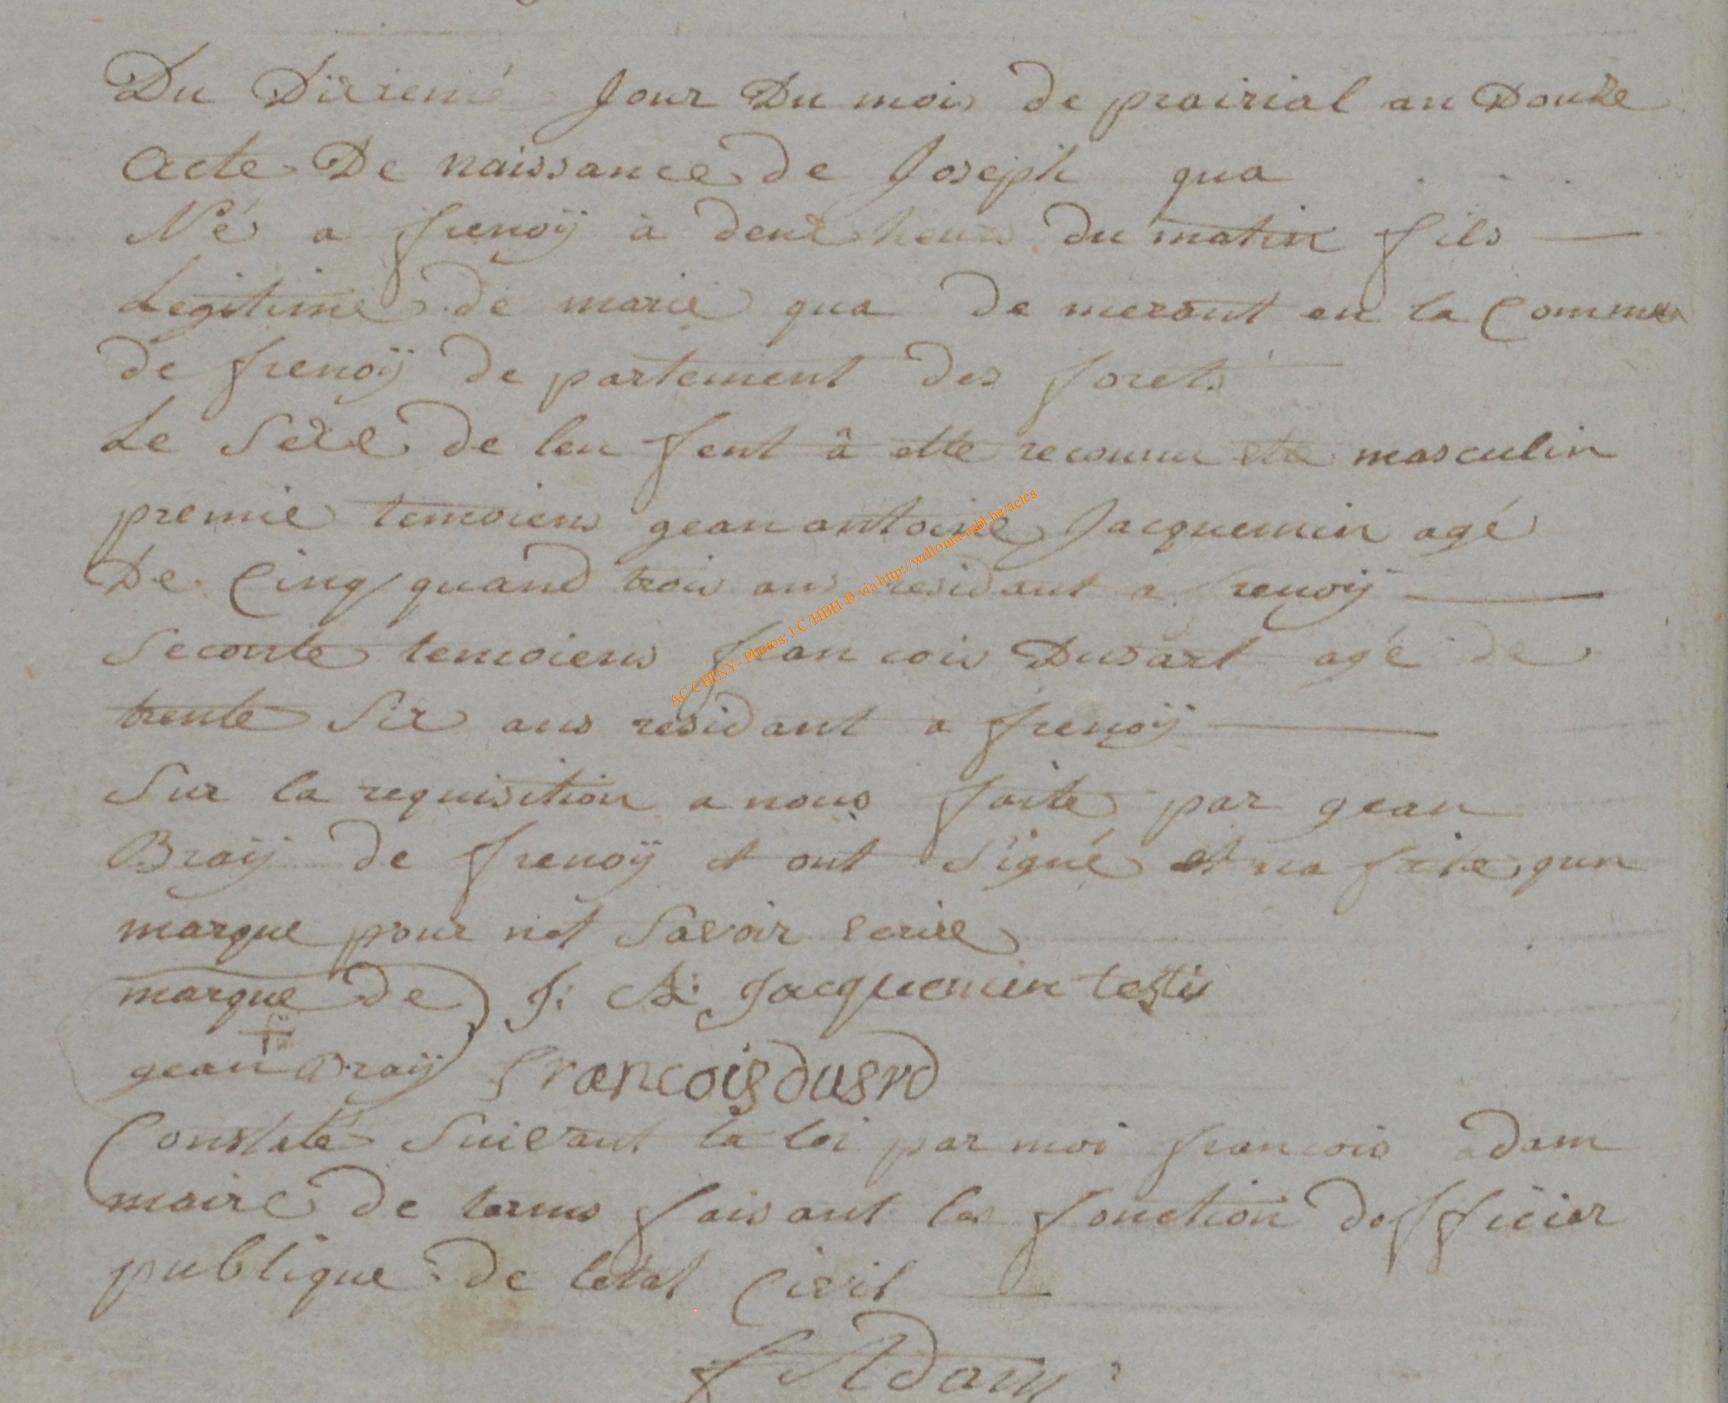 Du Dixieme Jour Du mois de prairial an Douze
Acte De naissance de Joseph qua
Né a frenoÿ à deux heurs du matin fils
Legitime de marie qua de merant en la Commun
de frenoÿ de partement des forets
Le Sexe de len fent â ette reconnu ete masculin
premie temoiens gean antoine Jacquemin agé
De Cinq quand trois ans residant a frenoÿ
Seconte temoiens francois Dusart agé de
trente Six ans residant a frenoÿ
Sur la requisition a nous faite par gean
Braÿ de frenoÿ et ont Signé et na faite qun
marque pour not Savoir ecrire
marque de J: A: Jacquemin testis
gean Braÿ francois dusrd
Constaté Suivant la loi par moi francois adam
maire de termes faisant les fonction dofficier
publique de letat Civil
f Adam
AC CHINY - Photos: J C HBH @ via http://wallonia-asbl.be/actes